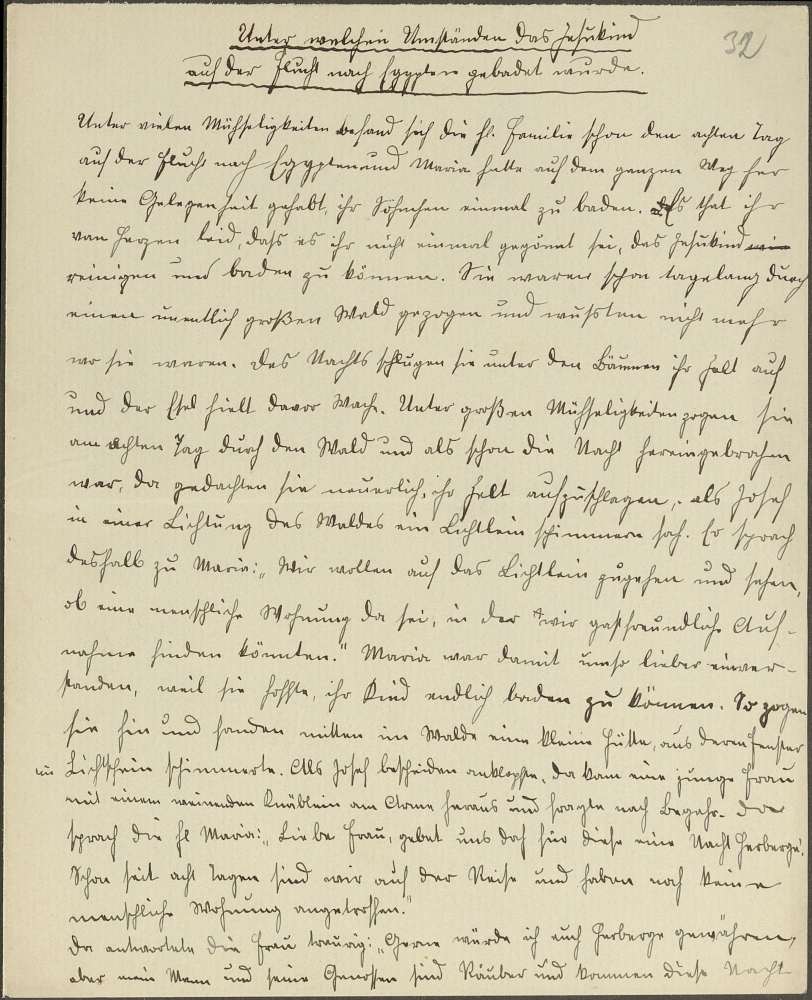 32
Unter welchen Umständen das Jesukind
auf der Flucht nach Egypten gebadet wurde.
Unter vielen Mühseligkeiten befand sich die hl. Familie schon den achten Tag
auf der Flucht nach Egypten und Maria hatte auf dem ganzen Weg her
keine Gelegenheit gehabt, ihr Söhnchen einmal zu baden. Es that ihr
vom Herzen leid, daß es ihr nicht einmal gegönnt sei, das Jesukind
reinigen und baden zu können. Sie waren schon tagelang durch
einen unentlich großen Wald gezogen und wußten nicht mehr
wo sie waren. Des Nachts schlugen sie unter den Bäumen ihr Zelt auf
und der Esel hielt davor Wache. Unter großen Mühseligkeiten zogen sie
am achten Tag durch den Wald und als schon die Nacht hereingebrochen
war, da gedachten sie neuerlich, ihr Zelt aufzuschlagen, als Josef
in einer Lichtung des Waldes ein Lichtlein schimmern sah. Er sprach
deshalb zu Maria: „Wir wollen auf das Lichtlein zugehen und sehen,
ob eine menschliche Wohnung da sei, in der wir gastfreundliche Auf-
nahme finden könnten." Maria war damit umso lieber einver-
standen, weil sie hoffte, ihr Kind endlich baden zu können. So zogen
sie hin und fanden mitten im Walde eine kleine Hütte, aus deren Fenster
ein Lichtschein schimmerte. Als Josef bescheiden anklopfte, da kam eine junge Frau
mit einem weinenden Knäblein am Arme heraus und fragte nach Begehr. Da
sprach die hl Maria: „Liebe Frau, gebet uns doch für diese eine Nacht Herberge.
Schon seit acht Tagen sind wir auf der Reise und haben noch keine
menschliche Wohnung angetroffen."
Da antwortete die Frau traurig: „Gerne würde ich euch Herberge gewähren,
aber mein Mann und seine Genossen sind Räuber und kommen diese Nacht